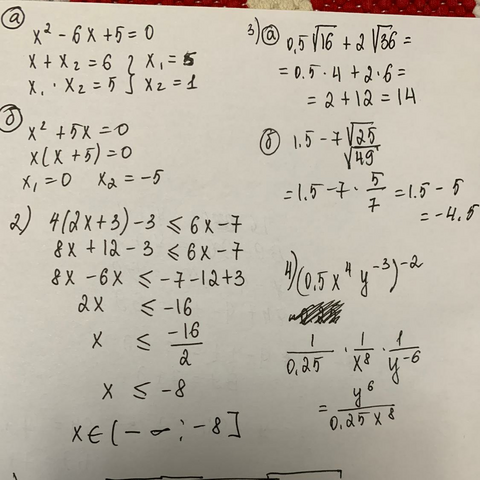 а)
x² - 6x + 5 = 0
x + x₂ = 6 } x₁ = 5
x₁ · x₂ = 5 } x₂ = 1
б)
x² + 5x = 0
x(x + 5) = 0
x₁ = 0 x₂ = -5
2) 4(2x+3) - 3 ≤ 6x - 7
8x + 12 - 3 ≤ 6x - 7
8x - 6x ≤ -7 - 12 + 3
2x ≤ -16
x ≤ -16/2
x ≤ -8
x ∈ (-∞ ; -8]
3) а) 0,5√16 + 2√36 =
= 0.5 · 4 + 2 · 6 =
= 2 + 12 = 14
б) 1.5 - 7 √25/√49
= 1.5 - 7 · 5/7 = 1.5 - 5
= -4.5
4) (0.5x⁴ y⁻³)⁻²
1/0.25 · 1/x⁸ · 1/y⁻⁶
= y⁶/0.25x⁸